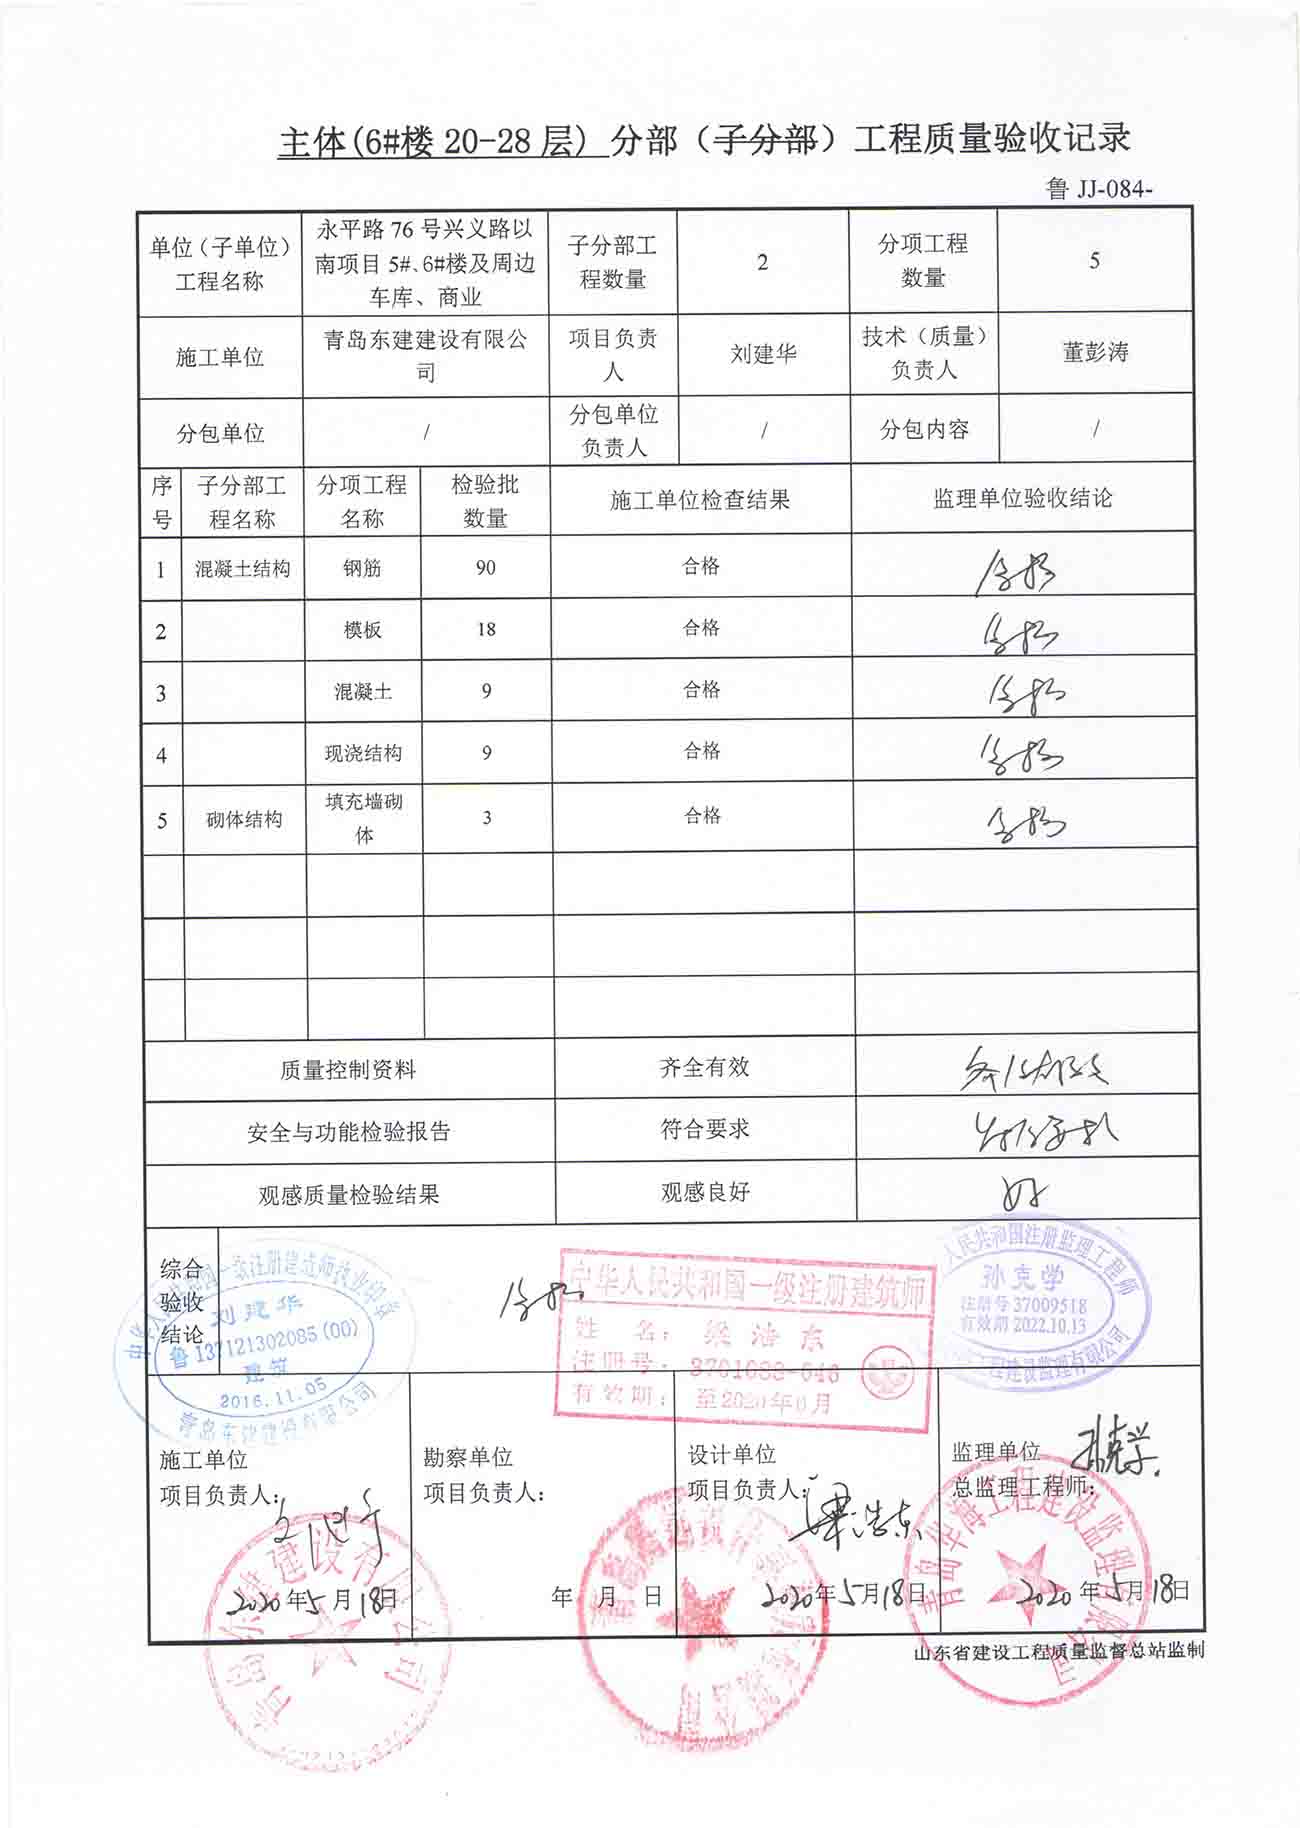 主体(6#楼 20-28 层) 分部（子分部）工程质量验收记录
鲁 JJ-084-
单位（子单位）
工程名称
永平路 76 号兴义路以
南项目 5#、6#楼及周边
车库、商业
子分部工
程数量
2
分项工程
数量
5
施工单位
青岛东建建设有限公
司
项目负责
人
刘建华
技术（质量）
负责人
董彭涛
分包单位
/
分包单位
负责人
/
分包内容
/
序
号
子分部工
程名称
分项工程
名称
检验批
数量
施工单位检查结果
监理单位验收结论
1 混凝土结构 钢筋 90 合格 合格
2 模板 18 合格 合格
3 混凝土 9 合格 合格
4 现浇结构 9 合格 合格
5 砌体结构
填充墙砌
体
3 合格 合格
质量控制资料 齐全有效
安全与功能检验报告 符合要求 符合要求
观感质量检验结果 观感良好 好
综合
验收
结论
合格
刘建华
鲁 137121302085(00)
建筑
2016.11.05
青岛东建建设有限公司
中华人民共和国一级注册建筑师
姓 名：梁浩东
注册号：
有效期：
人民共和国注册监理工程师
孙克学
注册号 37009518
有效期 2022.10.13
工程建设监理有限公司
施工单位
项目负责人：
2020年5月18日
勘察单位
项目负责人：
年 月 日
设计单位
项目负责人：梁浩东
2020年5月18日
监理单位
总监理工程师：孙克学
2020年5月18日
山东省建设工程质量监督总站监制